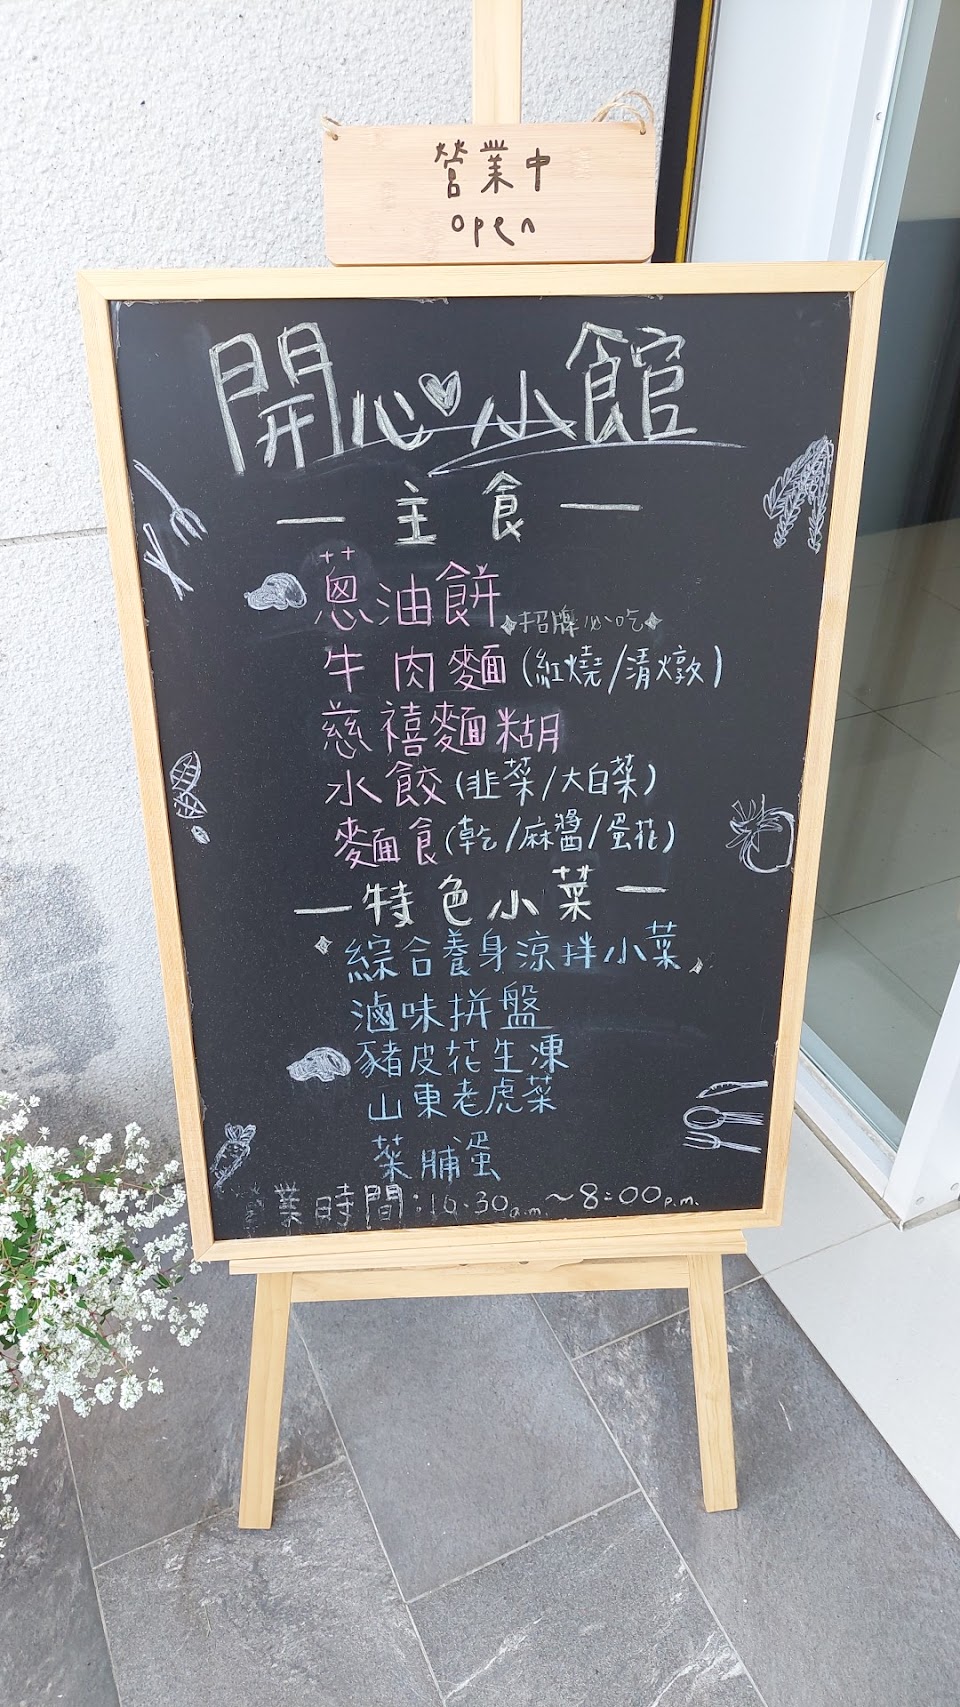 營業中
open
開心小館
— 主食 —
蔥油餅
招牌必吃
牛肉麵(紅燒/清燉)
慈禧麵糊
水餃(韭菜/大白菜)
麵食(乾/麻醬/蛋花)
— 特色小菜 —
綜合養身涼拌小菜
滷味拼盤
豬皮花生凍
山東老虎菜
菜脯蛋
營業時間:10:30a.m. ~8:00p.m.